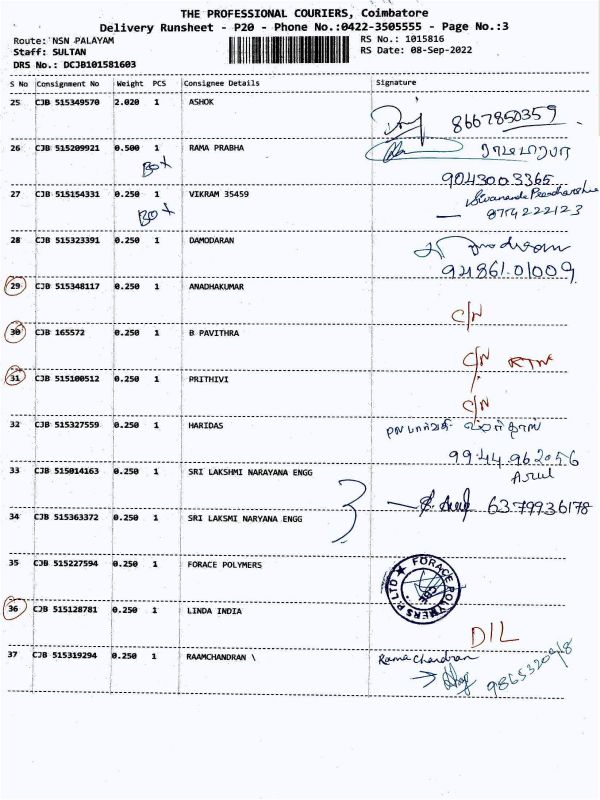 THE PROFESSIONAL COURIERS, Coimbatore
Delivery Runsheet - P20 - Phone No.:0422-3505555 - Page No.:3
Route: NSN PALAYAM RS No.: 1015816
Staff: SULTAN RS Date: 08-Sep-2022
DRS No.: DCJB101581603
S No Consignment No Weight PCS Consignee Details Signature
25 CJB 515349570 2.020 1 ASHOK 8667850359
26 CJB 515209921 0.500 1 RAMA PRABHA
Box 9043003365
27 CJB 515154331 0.250 1 VIKRAM 35459
Box 8754222123
28 CJB 515323391 0.250 1 DAMODARAN
94861.01009
29 CJB 515348117 0.250 1 ANADHAKUMAR
C/N
30 CJB 165572 0.250 1 B PAVITHRA
C/N RTN
31 CJB 515100512 0.250 1 PRITHIVI
C/N
32 CJB 515327559 0.250 1 HARIDAS
99.44.962056
33 CJB 515014163 0.250 1 SRI LAKSHMI NARAYANA ENGG Arul
63.79936178
34 CJB 515363372 0.250 1 SRI LAKSMI NARYANA ENGG
35 CJB 515227594 0.250 1 FORACE POLYMERS
FORACE POLYMERS P. LTD
36 CJB 515128781 0.250 1 LINDA INDIA
D/L
37 CJB 515319294 0.250 1 RAAMCHANDRAN \ Rama Chandran